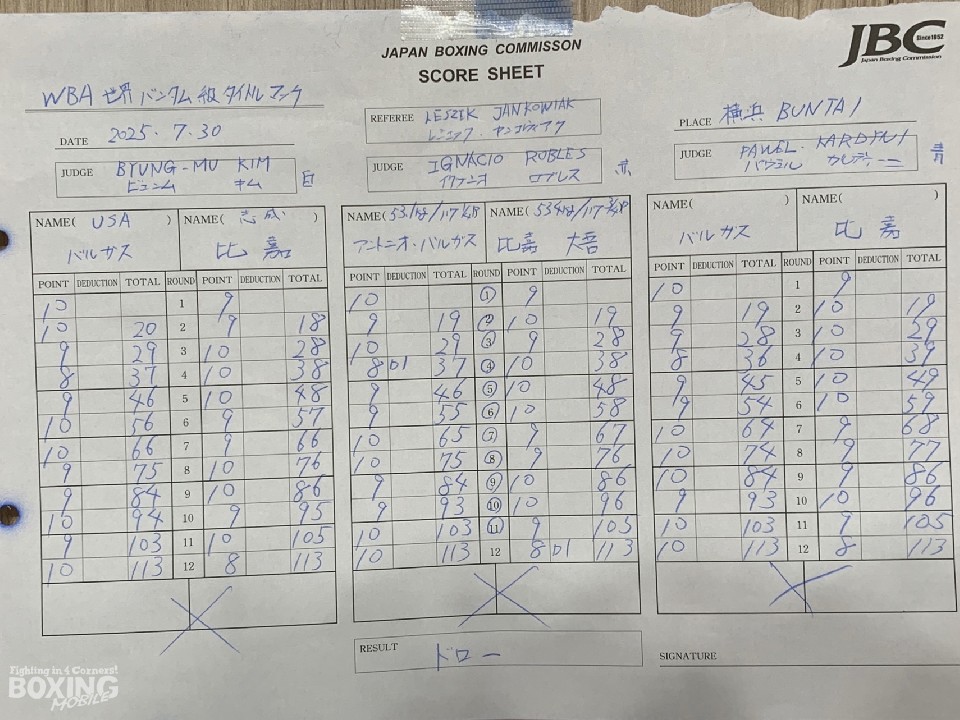 JAPAN BOXING COMMISSON
SCORE SHEET
JBC
Since1952
Japan Boxing Commission
WBA 世界 バンタム級 タイトルマッチ
DATE 2025. 7. 30
REFEREE LESZEK JANKOWIAK
PLACE 横浜 BUNTAI
JUDGE BYUNG-MU KIM
ビュンム キム 白
JUDGE IGNACIO ROBLES
イグナシオ ロブレス 赤
JUDGE PAWEL KARDYNI
パウエル カルディニー 青
NAME( USA ) NAME( 志成 )
バルガス 比嘉
POINT DEDUCTION TOTAL ROUND POINT DEDUCTION TOTAL
10 1 9
10 20 2 9 18
9 29 3 10 28
8 37 4 10 38
9 46 5 10 48
10 56 6 9 57
10 66 7 9 66
9 75 8 10 76
9 84 9 10 86
10 94 10 9 95
9 103 11 10 105
10 113 12 8 113
NAME( 53.1kg/117 ) NAME( 53.4kg/117 )
アントニオ・バルガス 比嘉 大吾
POINT DEDUCTION TOTAL ROUND POINT DEDUCTION TOTAL
10 1 9
9 19 2 10 19
10 29 3 9 28
8 D1 37 4 10 38
9 46 5 10 48
9 55 6 10 58
10 65 7 9 67
10 75 8 9 76
9 84 9 10 86
9 93 10 10 96
10 103 11 9 105
10 113 12 8 D1 113
NAME( ) NAME( )
バルガス 比嘉
POINT DEDUCTION TOTAL ROUND POINT DEDUCTION TOTAL
10 1 9
9 19 2 10 19
9 28 3 10 29
8 36 4 10 39
9 45 5 10 49
9 54 6 10 59
10 64 7 9 68
10 74 8 9 77
10 84 9 9 86
9 93 10 10 96
10 103 11 9 105
10 113 12 8 113
RESULT ドロー
SIGNATURE
Fighting in 4 Corners!
BOXING
MOBILE